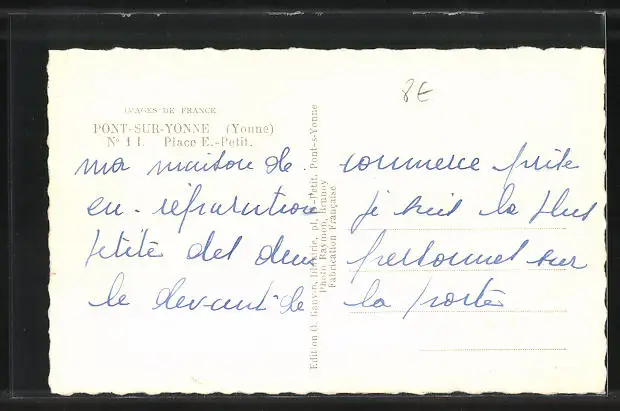 8E
IMAGES DE FRANCE
PONT-SUR-YONNE (Yonne)
N° 11. Place E.-Petit.
ma maison de commerce prise
en réparation je suis la plus
petite des deux personnes sur
le devant de la porte
Edition G. Gouvé, Librairie, pl. E.-Petit, Pont-s-Yonne
Photo Raymon, Brunoy
Fabrication Française